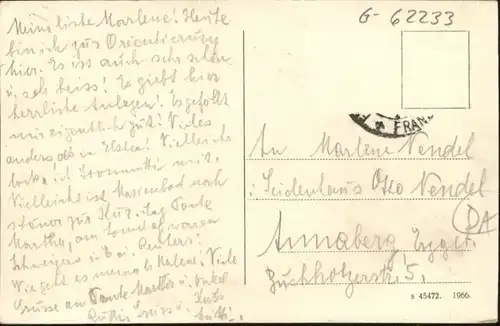 G-62233
Meine liebe Marlene! Heute
bin ich zur Orientierung
hier. Es ist auch sehr schön
u. seh heiss! Es giebt hier
herrliche Anlagen! Es gefällt
mir eigentlich gut! Vieles
anders als in Elster! Vielleicht
mit.
Vielleicht ist Marienbad noch
zur Kur. Sag Tante
Martha, am Sonntag waren
Schweigers
Wie geht es meine l. Helene. Viele
Grüsse an Tante Martha u. Onkel
Gruss u. Kuss
FRAN
An Marlene Nendel
Seidenhaus Otto Nendel
Annaberg Erzgeb.
Buchholzerstr. 5.
DA
S 45472. 1966